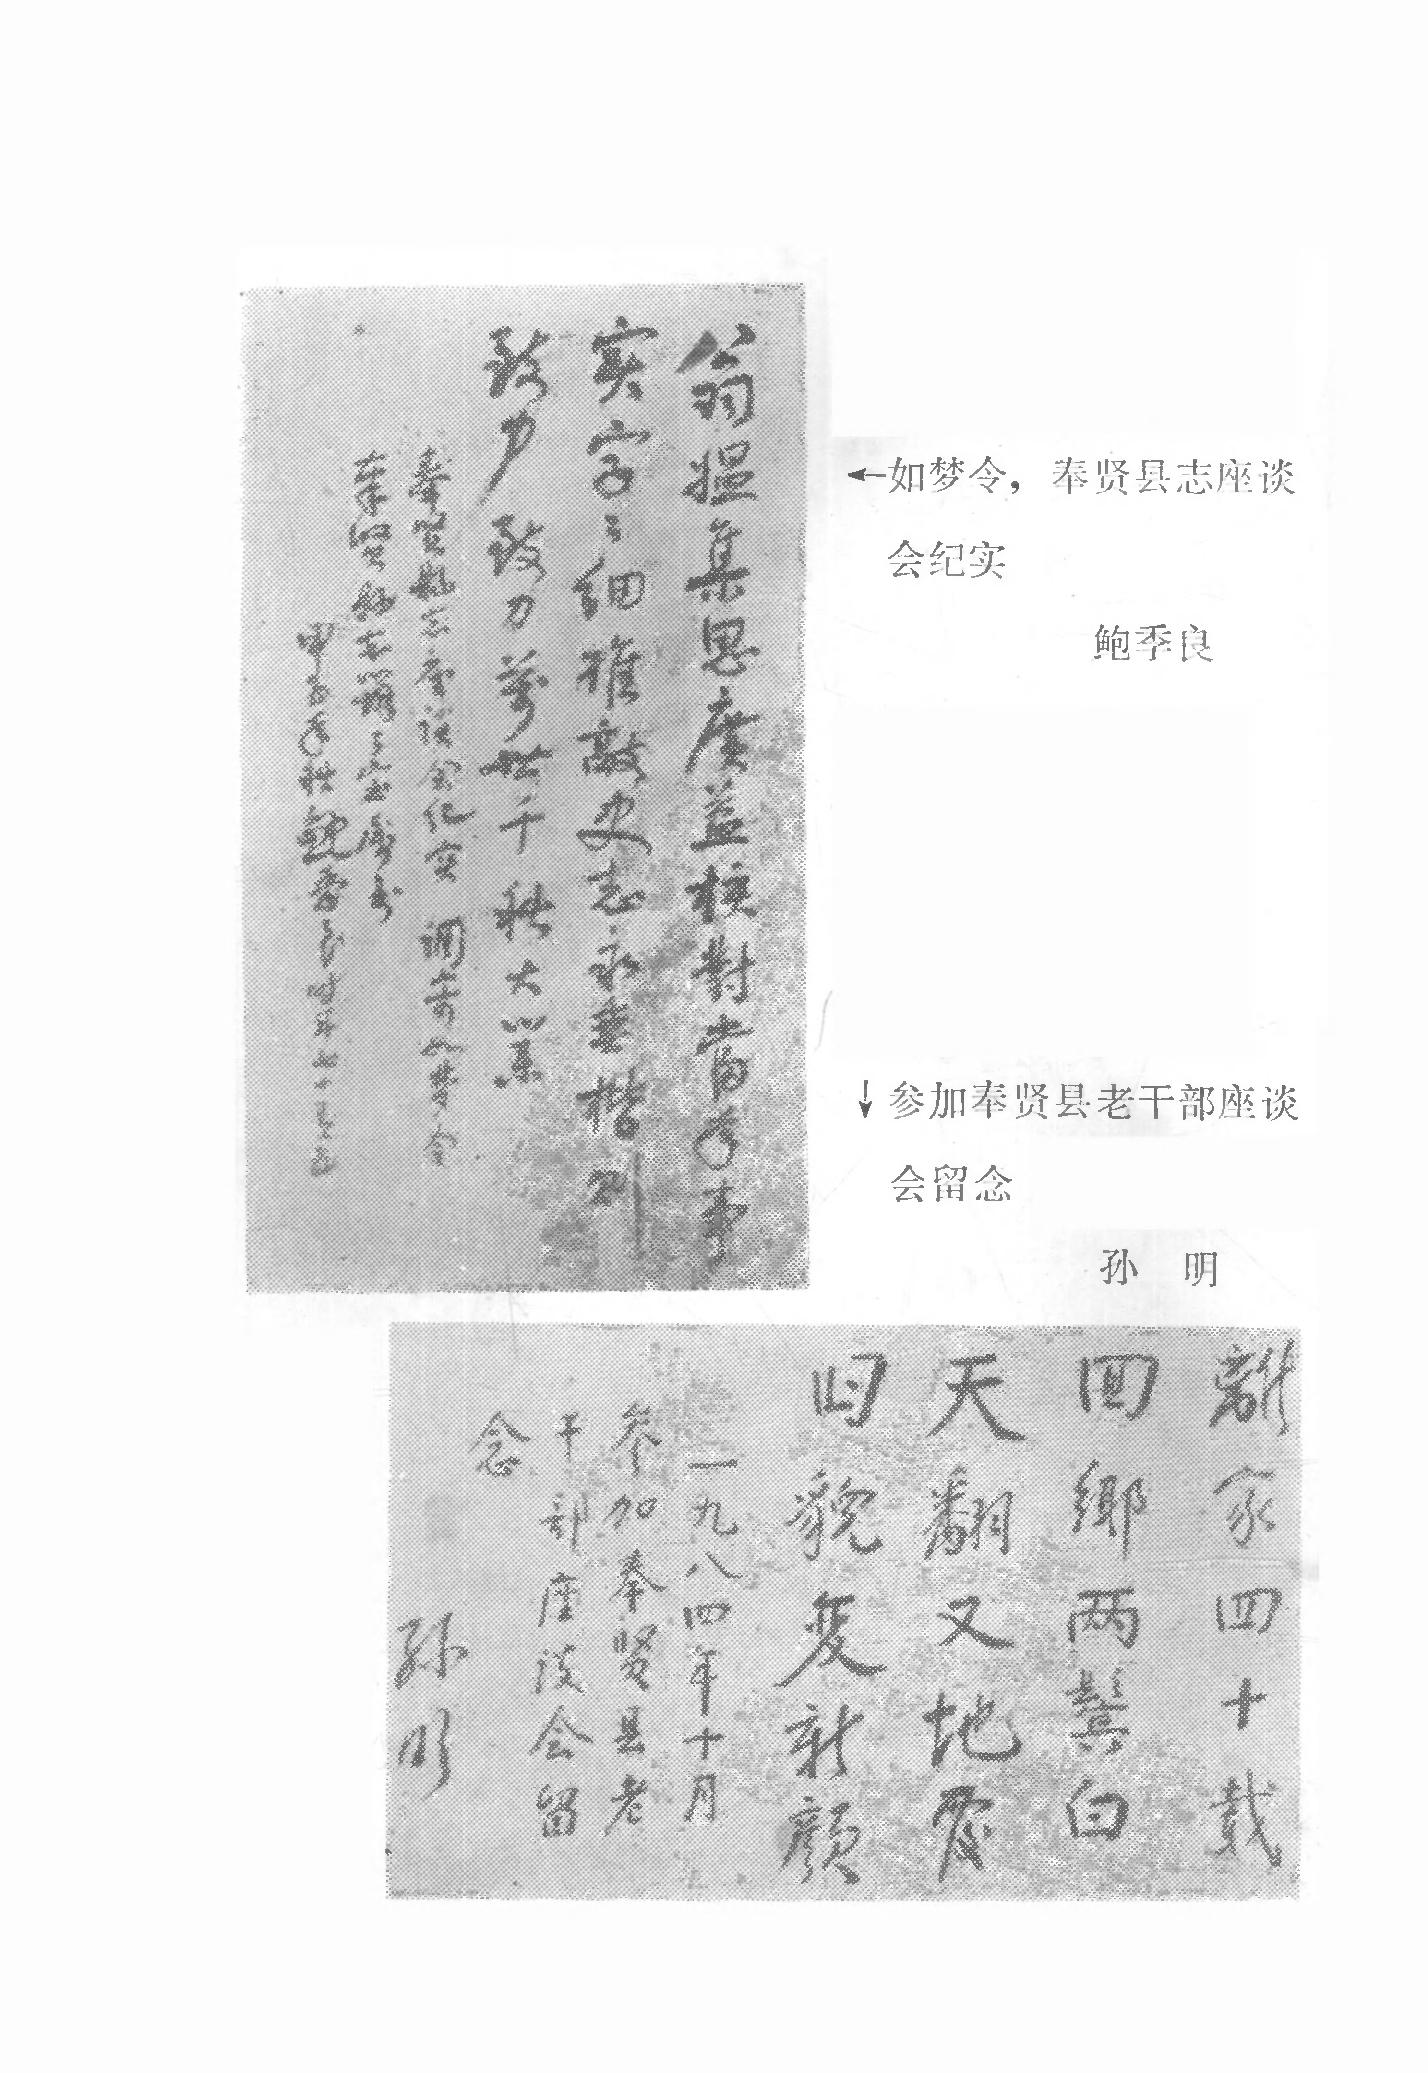 翁媪集思廣益核對当年事
实字々细推敲史志永垂楷则
致力致力萬世千秋大業
奉贤县志座谈会纪实 调寄如夢令
奉贤县志
甲子年秋鲍季良时年七十
←如梦令，奉贤县志座谈
会纪实
鲍季良
↓参加奉贤县老干部座谈
会留念
孙 明
離家四十载
回鄉两鬓白
天翻又地覆
旧貌变新颜
一九八四年十月
参加奉贤县老
干部座谈会留
念
孙明